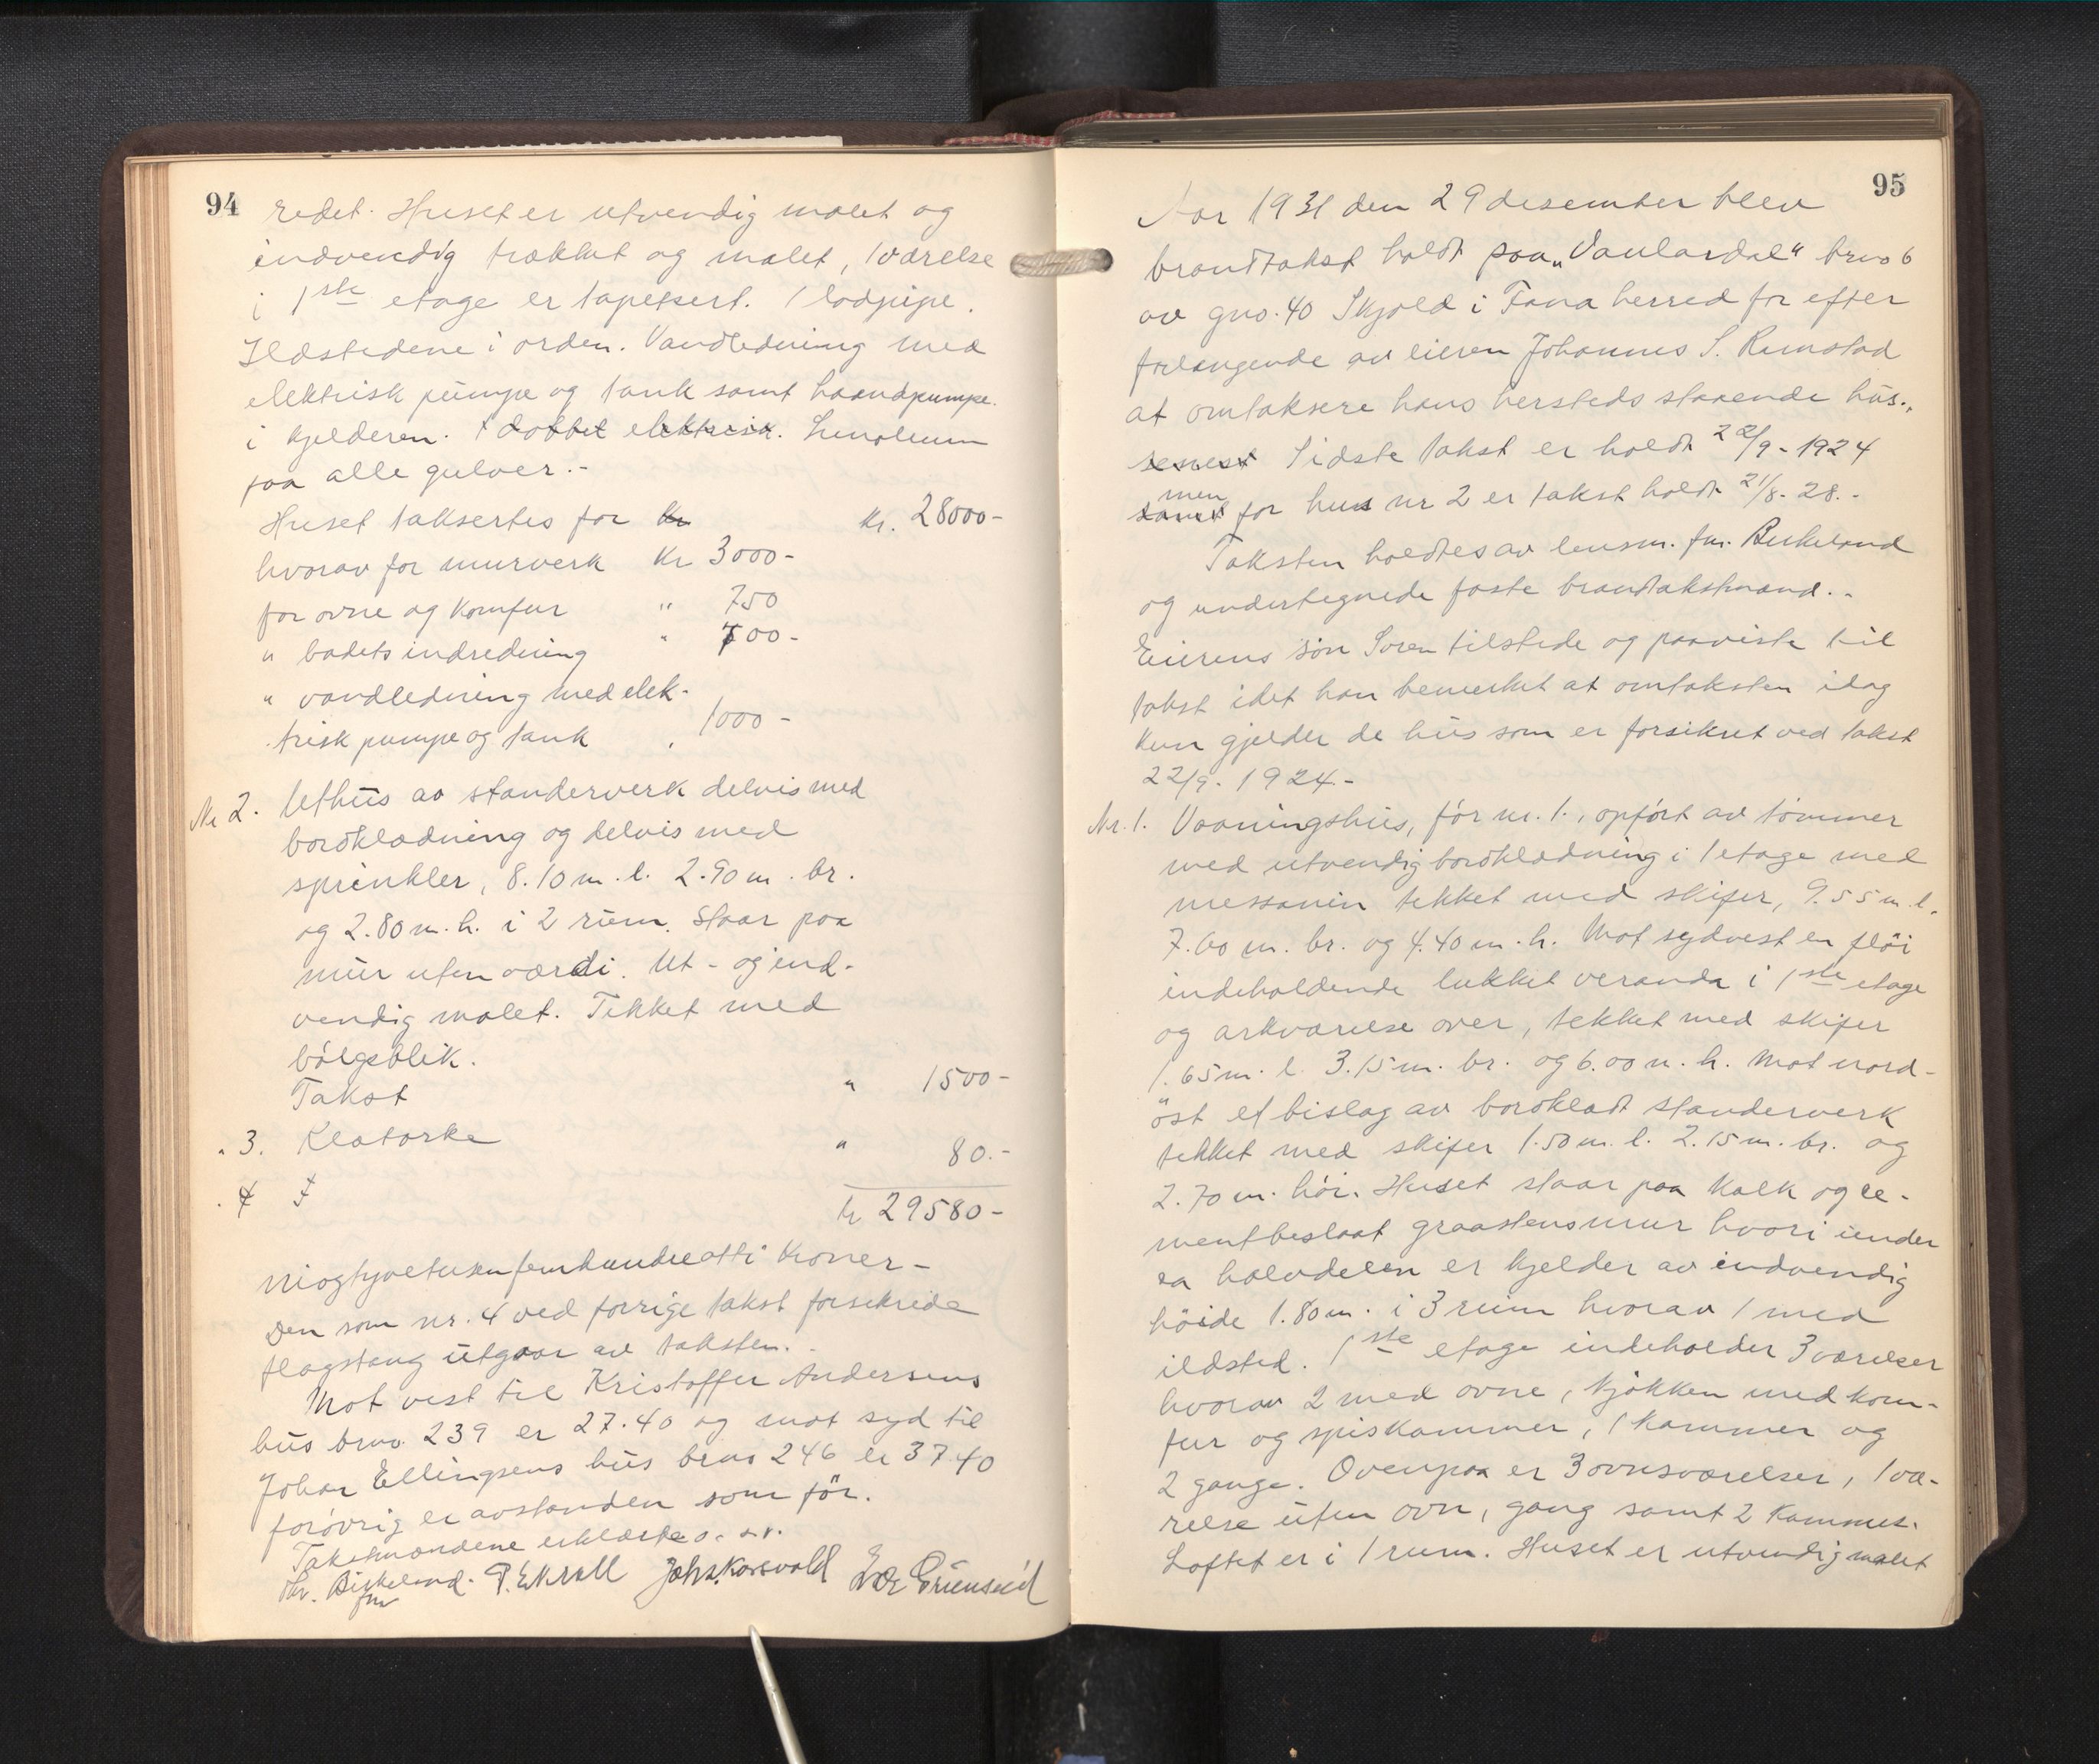 94
redet. Huset er utvendig malet og
indvendig trækket og malet, 1 værelse
i 1ste etage er tapetsert. 1 lodpipe.
Ildstedene i orden. Vandledning med
elektrisk pumpe og tank samt haandpumpe.
i kjelderen. elektrisk. Linoleum
paa alle gulver.-
Huset taksertes for kr kr. 28000-
hvorav for murverk Kr 3000-
for ovne og komfur " 750
" badets indredning " 700-
" vandledning med elek-
trisk pumpe og tank " 1000-
Nr 2. Uthus av standerverk delvis med
bordklædning og delvis med
sprinkler, 8.10 m. l. 2.90 m. br.
og 2.80 m. h. i 2 rum. Staar paa
mur uten værdi. Ut- og ind-
vendig malet. Tekket med
bölgeblik.
Takst " 1500-
" 3. Klatorke " 80.-
. 4 F
kr 29580-
Niogtyvetusenfemhundreotti Kroner-
Den som nr. 4 ved forrige takst forsikrede
flagstang utgaar av taksten.
Mot vest til Kristoffer Andersens
hus brno. 239 er 27.40 og mot syd til
Johan Ellingsens hus brno 246 er 37.40
forövrig er avstanden som för.
Takstmændene erklærte o. s. v.
Birkeland. P. Ekroll Johs. Korsvold
fm
95
Aar 1931 den 29 desember blev
brandtakst holdt paa "Vaulardal" brno 6
av gno. 40 Skjold i Fana herred for efter
forlangende av eieren Johannes S. Rimstad
at omtaksere hans hersteds staaende hus.,
senest Sidste takst er holdt 22/9-1924
men
samt for hus nr 2 er takst holdt 21/8-28.-
Taksten holdtes av lensm. fm. Birkeland
og undertegnede faste brandtakstmænd.-
Eierens sön Soren tilstede og paaviste til
takst idet han bemerket at omtaksten idag
kun gjelder de hus som er forsikret ved takst
22/9-1924-
Nr. 1. Vaaningshus, för nr. 1., opfört av tömmer
med utvendig bordklædning i 1 etage med
messanin tekket med skifer, 9.55 m. l.
7.60 m. br. og 4.40 m. h. Mot sydvest en flöi
indeholdende lukket veranda i 1ste etage
og arkværelse over, tekket med skifer
1.65 m. l. 3.15 m. br. og 6.00 m. h. Mot nord-
öst et bislag av bordklædt standerverk
tekket med skifer 1.50 m. l. 2.15 m. br. og
2.70 m. höi. Huset staar paa kalk og ce-
mentbeslaat graastensmur hvori under
ca halvdelen er kjelder av indvendig
höide 1.80 m. i 3 rum hvorav 1 med
ildsted. 1ste etage indeholder 3 værelser
hvorav 2 med ovne, kjökken med kom-
fur og spiskammer, 1 kammer og
2 gange. Ovenpaa er 3 ovnsværelser, 1 væ-
relse uten ovn, gang samt 2 kammer.
Loftet er i 1 rum. Huset er utvendig malet